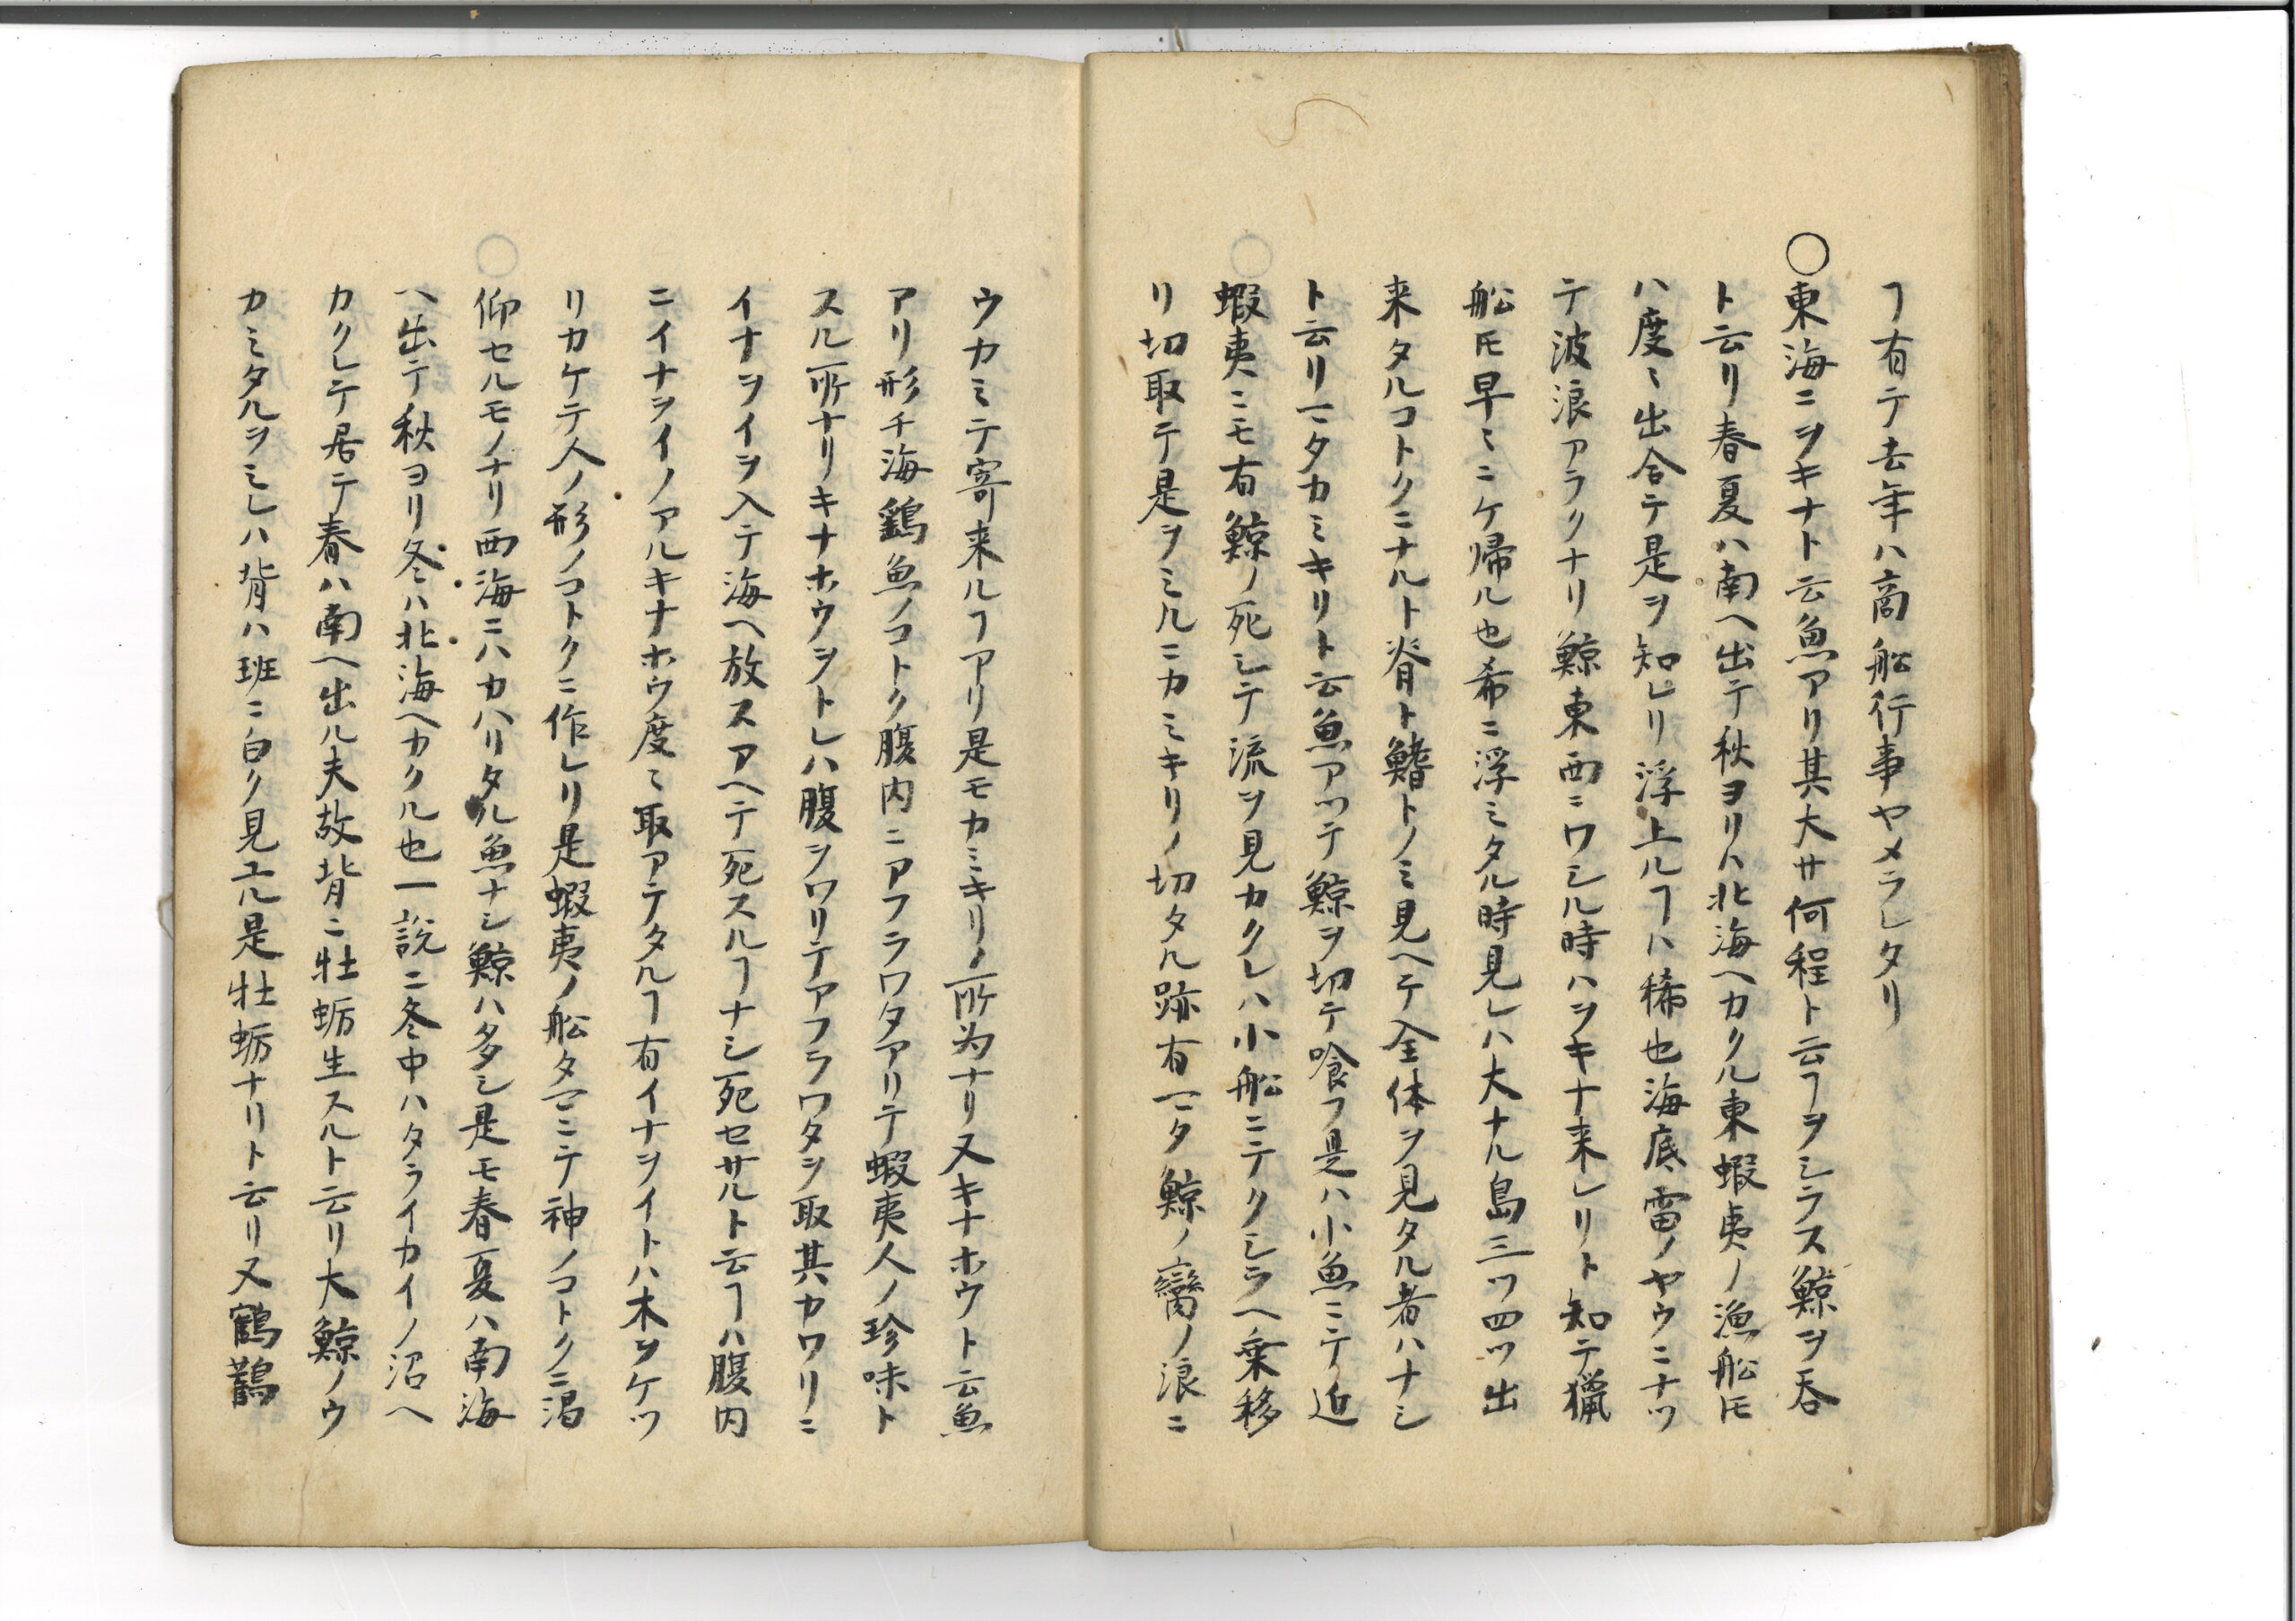 ヿ有テ去年ハ商舩行事ヤメラレタリ
○東海ニヲキナト云魚アリ其大サ何程ト云ヿヲシラス鯨ヲ呑
ト云リ春夏ハ南ヘ出テ秋ヨリハ北海ヘカクル東蝦夷ノ漁舩𪜈
ハ度〻出合テ是ヲ知レリ浮上ルヿハ稀也海底雷ノヤウニナツ
テ波浪アラクナリ鯨東西ニワシル時ハヲキナ来レリト知テ猟
舩𪜈早〻ニケ帰ル也希ニ浮ミタル時見レハ大ナル島三ツ四ツ出
来タルコトクニナルト脊ト鰭トノミ見ヘテ全体ヲ見タル者ハナシ
ト云リ亦タカミキリト云魚アツテ鯨ヲ切テ喰フ是ハ小魚ニテ近
蝦夷ニモ有鯨ノ死シテ流ヲ見カクレハ小舩ニテクシラヘ乗移
リ切取テ是ヲミルニカミキリノ切タル跡有亦タ鯨ノ臠ノ浪ニ
ウカミテ寄来ルヿアリ是モカミキリノ所為ナリ又キナホウト云魚
アリ形チ海鷂魚ノコトク腹内ニアフラワタアリテ蝦夷人ノ珍味ト
スル所ナリキナホウヲトレハ腹ヲワリテアフラワタヲ取其カワリニ
イナヲイヲ入テ海ヘ放スアヘテ死スルヿナシ死セサルト云ヿハ腹内
ニイナヲイノアルキナホウ度〻取アテタルヿ有イナヲイトハ木ヲケツ
リカケテ人ノ形ノコトクニ作レリ是蝦夷ノ舩タマニテ神ノコトクニ渇
○仰セルモノナリ西海ニハカハリタル魚ナシ鯨ハ多シ是モ春夏ハ南海
ヘ出テ秋ヨリ冬ハ北海ヘカクル也一説ニ冬中ハタライカイノ沼ヘ
カクレテ居テ春ハ南ヘ出ル夫故背ニ牡蛎生スルト云リ大鯨ノウ
カミタルヲミレハ背ハ班ニ白ク見エル是牡蛎ナリト云リ又鶴鵲